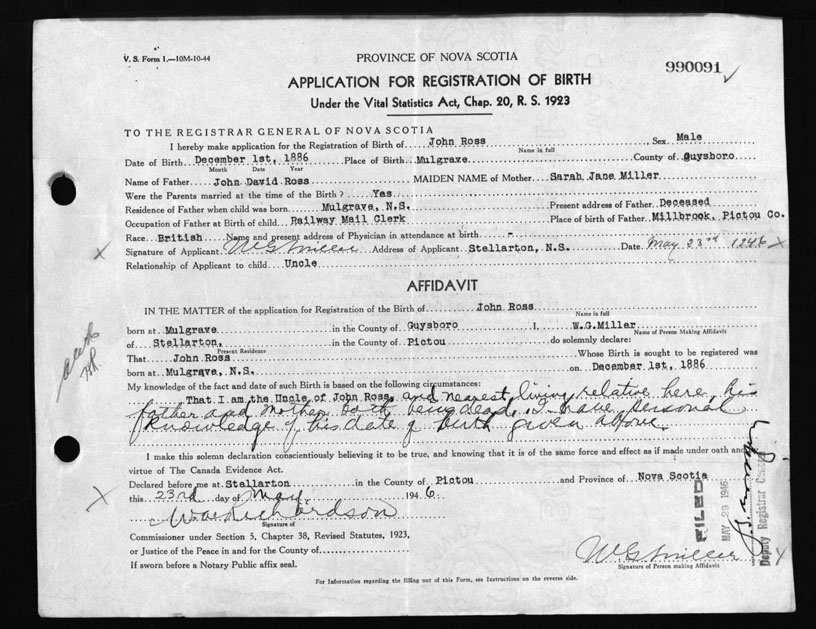 V. S. Form 1.—10M-10-44
PROVINCE OF NOVA SCOTIA
990091
APPLICATION FOR REGISTRATION OF BIRTH
Under the Vital Statistics Act, Chap. 20, R. S. 1923
TO THE REGISTRAR GENERAL OF NOVA SCOTIA
I hereby make application for the Registration of Birth of John Ross Sex Male
Name in full
Date of Birth December 1st, 1886 Place of Birth Mulgrave County of Guysboro
Month Date Year
Name of Father John David Ross MAIDEN NAME of Mother Sarah Jane Miller
Were the Parents married at the time of the Birth? Yes
Residence of Father when child was born Mulgrave, N.S. Present address of Father Deceased
Occupation of Father at Birth of child Railway Mail Clerk Place of birth of Father Millbrook, Pictou Co.
Race British Name and present address of Physician in attendance at birth -
Signature of Applicant W G Miller Address of Applicant Stellarton, N.S. Date May 23rd 1246
Relationship of Applicant to child Uncle
AFFIDAVIT
IN THE MATTER of the application for Registration of the Birth of John Ross
Name in full
born at Mulgrave in the County of Guysboro I, W.G.Miller
Name of Person Making Affidavit
of Stellarton, in the County of Pictou do solemnly declare:
Present Residence
That John Ross Whose Birth is sought to be registered was
born at Mulgrave, N.S. on December 1st, 1886
My knowledge of the fact and date of such Birth is based on the following circumstances:
That I am the Uncle of John Ross, and nearest living relative here, his
father and mother both being dead, I have personal
knowledge of his date of birth given above.
I make this solemn declaration conscientiously believing it to be true, and knowing that it is of the same force and effect as if made under oath and
virtue of The Canada Evidence Act.
Declared before me at Stellarton in the County of Pictou and Province of Nova Scotia
this 23rd day of May, 1946.
Richardson
Signature of
Commissioner under Section 5, Chapter 38, Revised Statutes, 1923,
or Justice of the Peace in and for the County of
If sworn before a Notary Public affix seal.
W G Miller
Signature of Person making Affidavit
FILED
MAY 29 1946
Deputy Registrar
For Information regarding the filling out of this Form, see Instructions on the reverse side.